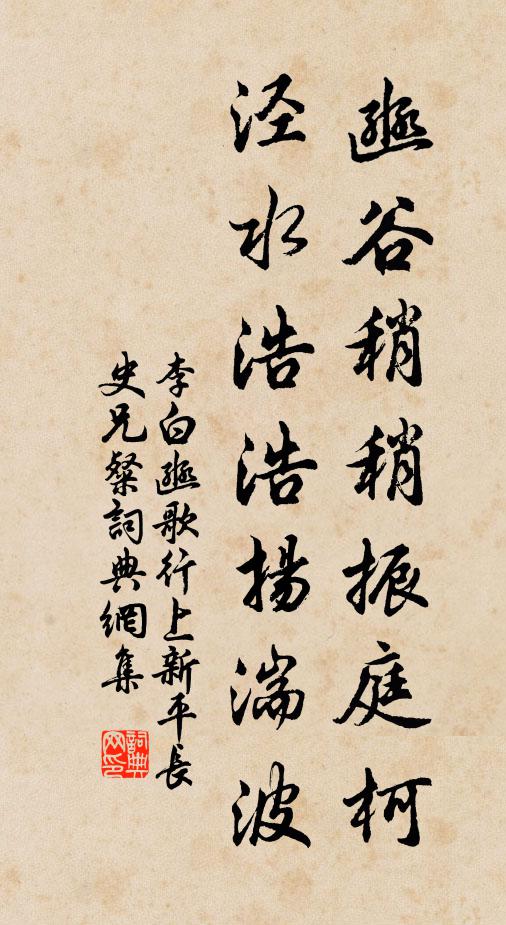 豳谷稍稍振庭柯
泾水浩浩揚湍波
李白豳歌行上新平長
史兄粲詞典網集
詞典
网印